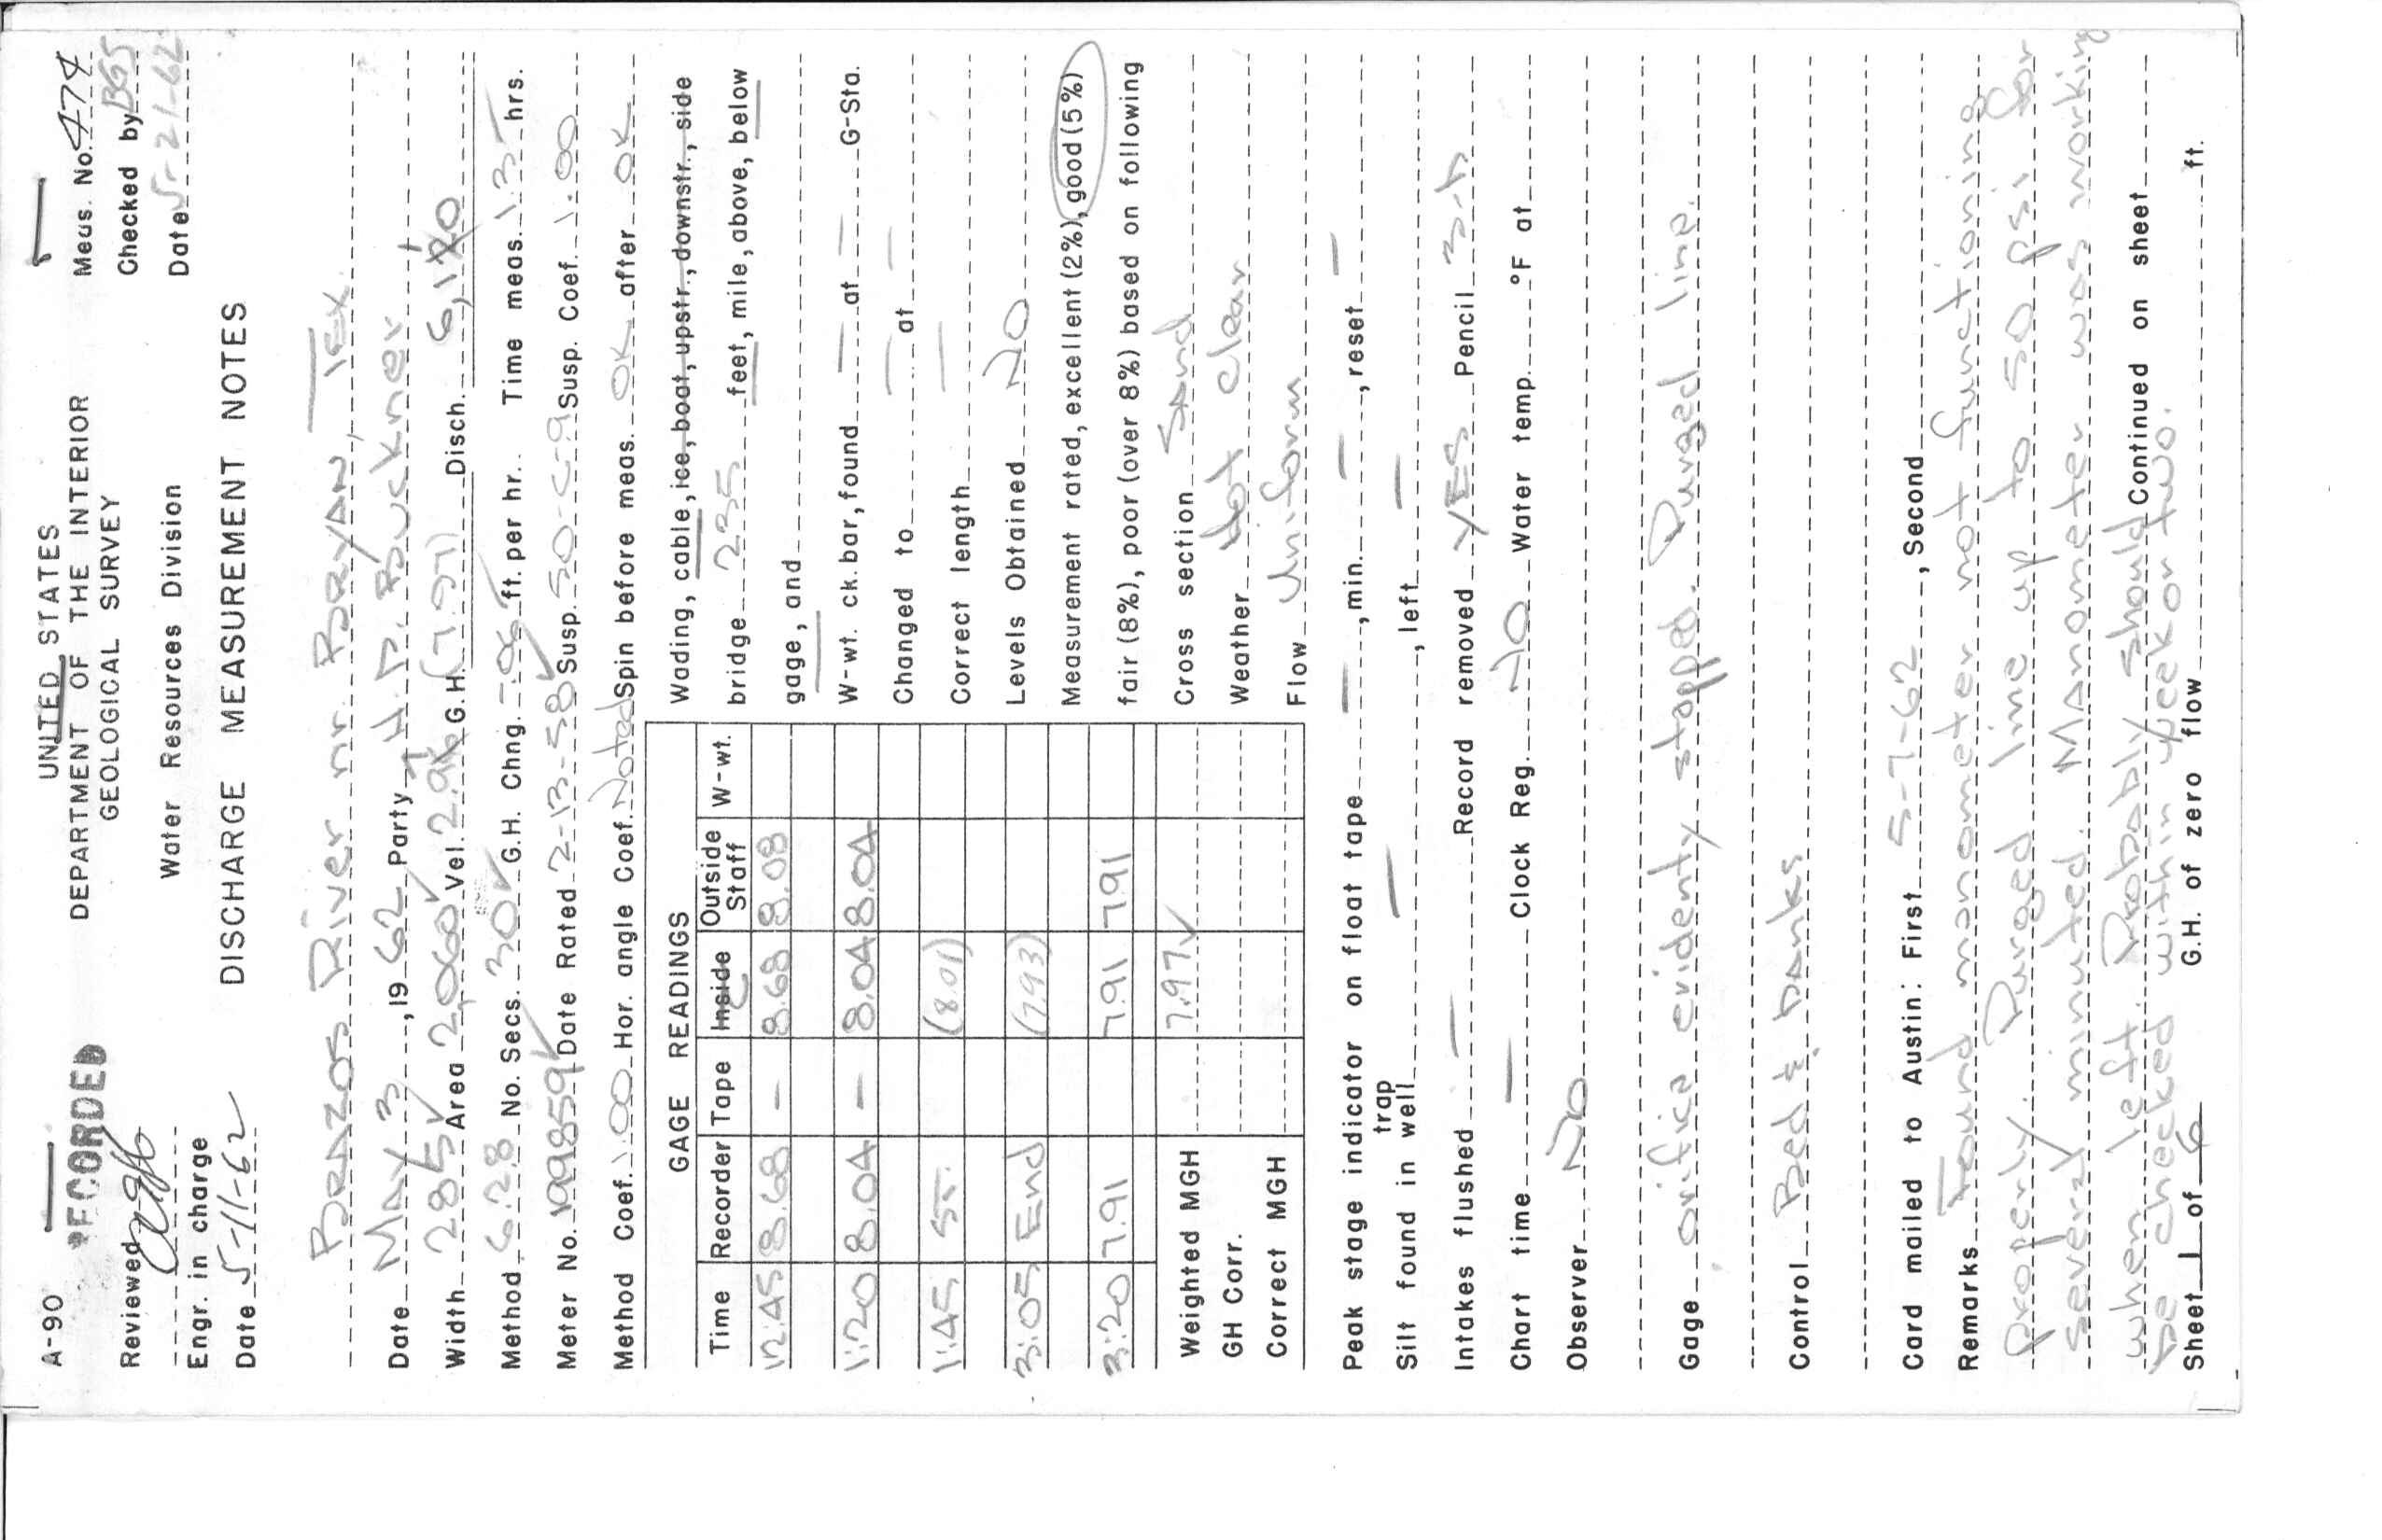 A-90
UNITED STATES
DEPARTMENT OF THE INTERIOR
GEOLOGICAL SURVEY
Water Resources Division
RECORDED
Reviewed
Engr. in charge
Date 5-11-62
Meus. No. 474
Checked by BGS
Date 5-21-62
DISCHARGE MEASUREMENT NOTES
Brazos River nr. Bryan, Tex.
Date May 3, 1962 Party H.P. Buckner
Width 285 Area 2,060 Vel. 2.96 G.H. (7.97) Disch. 6,120
Method 6.2.8 No. Secs. 30 G.H. Chng. -.06 ft. per hr. Time meas. 1.3 hrs.
Meter No. 199859 Date Rated 2-13-58 Susp. 50-C-.9 Susp. Coef. 1.00
Method Coef. 1.00 Hor. angle Coef. Noted Spin before meas. OK after OK
GAGE READINGS
Time Recorder Tape Inside Outside Staff W-wt.
12:45 8.68 — 8.68 8.08
1:20 8.04 — 8.04 8.04
1:45 St. (8.01)
3:05 End (7.93)
3:20 7.91 7.91 7.91
Weighted MGH 7.97
GH Corr.
Correct MGH
Wading, cable, ice, boat, upstr., downstr., side
bridge 235 feet, mile, above, below
gage, and
W-wt. ck. bar, found — at — G-Sta.
Changed to — at —
Correct length —
Levels Obtained No
Measurement rated, excellent (2%), good (5%)
fair (8%), poor (over 8%) based on following
Cross section Sand
Weather Hot clear
Flow Uniform
Peak stage indicator on float tape —, min. —, reset —
Silt found in trap well —, left —
Intakes flushed — Record removed YES Pencil 3-H
Chart time — Clock Reg. No Water temp. °F at
Observer No
Gage orifice evidenty stopped. Purged line.
Control Bed & banks
Card mailed to Austin: First 5-7-62, Second
Remarks Found manometer not functioning
properly. Purged line up to 50 psi for
severzl minuted. Manometer was working
when left. Probably should Continued on sheet
be checked within week or two.
Sheet 1 of 6 G.H. of zero flow ft.